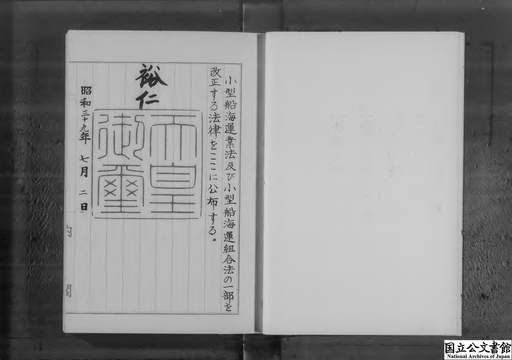 小型船海運業法及び小型船海運組合法の一部を
改正する法律をここに公布する。
裕仁
天皇
御璽
昭和三十九年 七月 二日
国立公文書館
National Archives of Japan